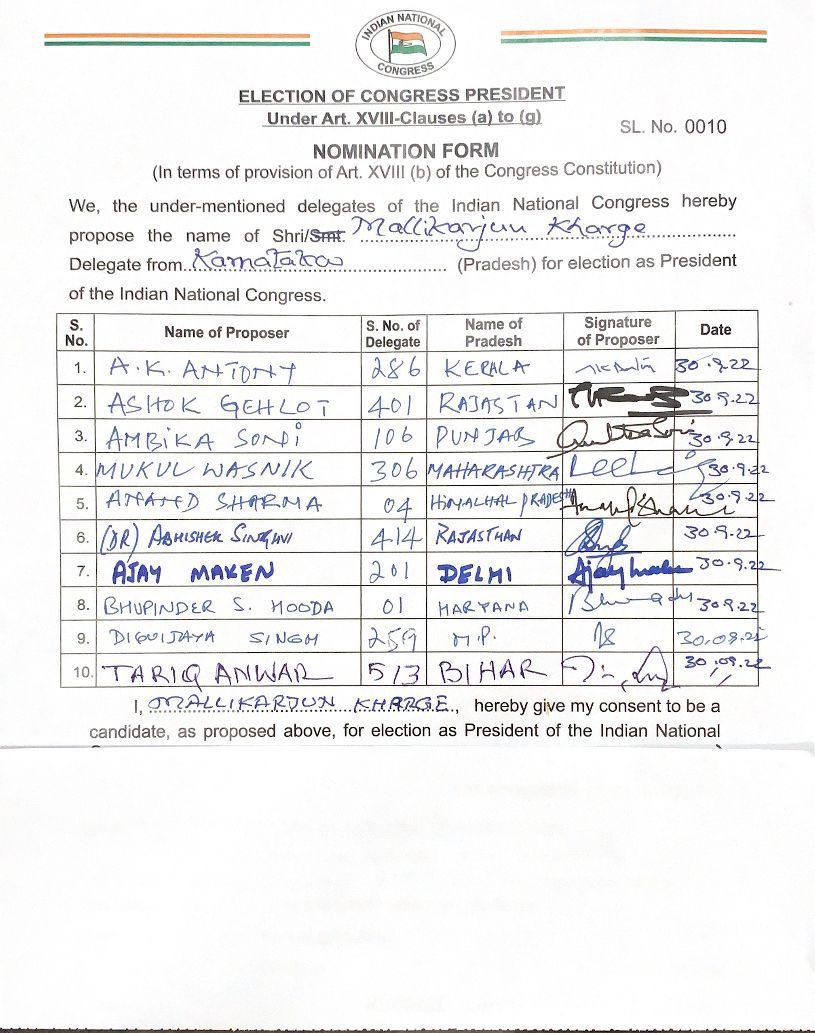 INDIAN NATIONAL
CONGRESS
ELECTION OF CONGRESS PRESIDENT
Under Art. XVIII-Clauses (a) to (g)
SL. No. 0010
NOMINATION FORM
(In terms of provision of Art. XVIII (b) of the Congress Constitution)
We, the under-mentioned delegates of the Indian National Congress hereby
propose the name of Shri/Smt. Mallikarjun Kharge
Delegate from Karnataka (Pradesh) for election as President
of the Indian National Congress.
S. No. Name of Proposer S. No. of Delegate Name of Pradesh Signature of Proposer Date
1. A.K. ANTONY 286 KERALA 30.9.22
2. ASHOK GEHLOT 401 RAJASTAN 30.9.22
3. AMBIKA SONI 106 PUNJAB 30.9.22
4. MUKUL WASNIK 306 MAHARASHTRA 30.9.22
5. ANAND SHARMA 04 HIMALHAL PRADESH 30.9.22
6. (DR) ABHISHEK SINGHVI 414 RAJASTHAN 30.9.22
7. AJAY MAKEN 201 DELHI Ajay Maken 30.9.22
8. BHUPINDER S. HOODA 01 HARYANA 30.9.22
9. DIGVIJAYA SINGH 259 M.P. 30.09.22
10. TARIQ ANWAR 513 BIHAR 30.09.22
I, MALLIKARJUN KHARGE, hereby give my consent to be a
candidate, as proposed above, for election as President of the Indian National